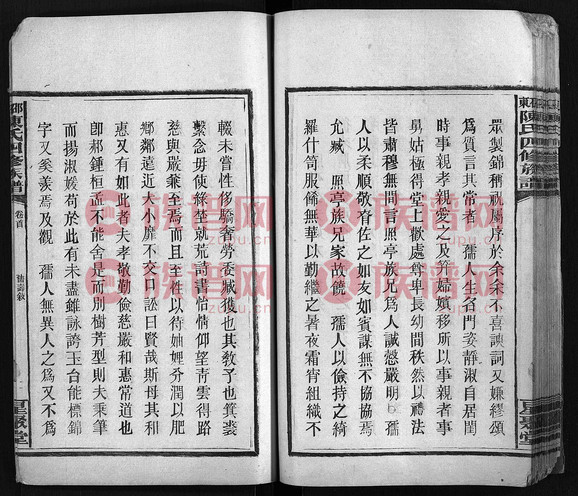 眾製錦稱祝屬序於余余不喜諛詞又嫌繆頌
為質言其常者 孺人生名門姿靜淑自居閨
時事親孝親愛之及笄婦嬪移所以事親者事
舅姑極得堂上歡處尊卑長幼閒秩然以禮法
皆肅穆無閒言照亭族兄為人誠慤嚴明 孺
人以柔順敬脊佐之如友如賓謀無不協協焉
允臧 照亭族兄家故饒 孺人以儉持之綺
羅什筒服飾無華以勤繼之暑夜霜宵組織不
輟未嘗性侈驕奢勞委臧獲也其教子也箕裘
繫念毋使絛埜就荒詩書怡情仰望青雲得路
慈與嚴乘至焉而且至性以待妯娌分潤以肥
鄰鄰遠近大小靡不交口訟曰賢哉斯母其和
惠又有如此者夫孝敬勤儉慈嚴和惠常道也
卽郝鍾桓孟不能舍是而別樹芳型則夫秉筆
而揚淑媛苟於此有未盡雖詠誇玉台能標錦
字又奚羨焉及觀 孺人無異人之為又不為
陳氏四修族譜
卷首
星聚堂
族谱网
zupu.cn